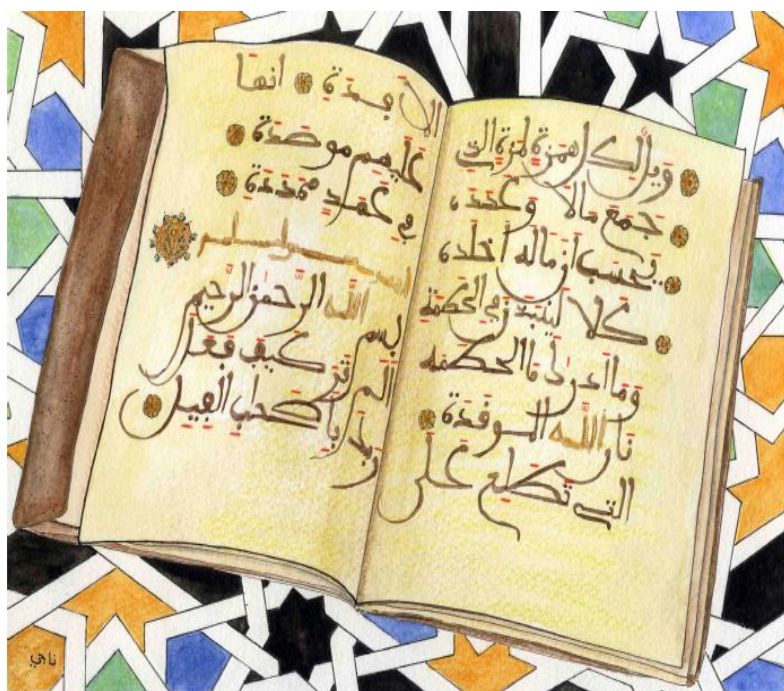 ويل لكل همزة لمزة الذي
جمع مالا وعدده
يحسب ان ماله اخلده
كلا لينبذن في الحطمة
وما ادريك ما الحطمة
نار الله الموقدة
التي تطلع على
الافدة انها
عليهم موصدة
في عمد ممددة
بسم الله الرحمن الرحيم
الم تر كيف فعل
ربك باصحب الفيل